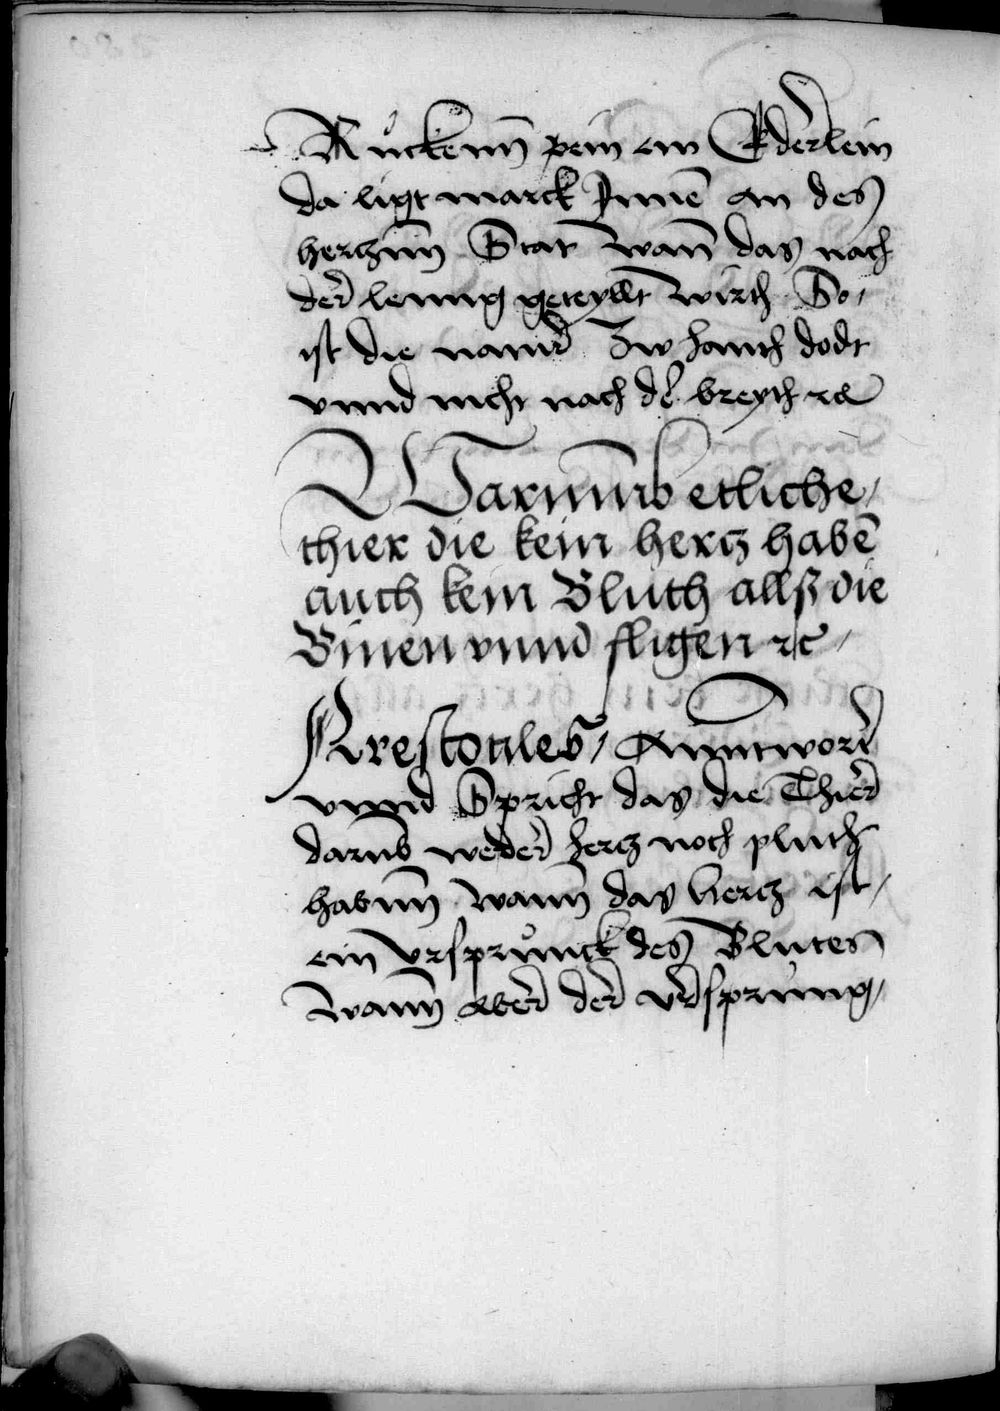 Růckenn pein ein Ederlein
da ligt marck Innē an des
herczinn Stat wann das nach
der lenng geteyllt wirth So /
ist die natur Zw hanth dodt
vnnd nicht nach dˢ breyth ꝛc
WArumb etliche /
thier die kein hercz habē
auch kein Bluth allß die
Binen vnnd fligen ꝛc /
Arestotileß / Anntwort
vnnd Spricht das die Thier
darūb weder hercz noch pluth
habnn wann das hercz ist /
ein vrsprůnck des Blutes
wann aber der vrsprung /